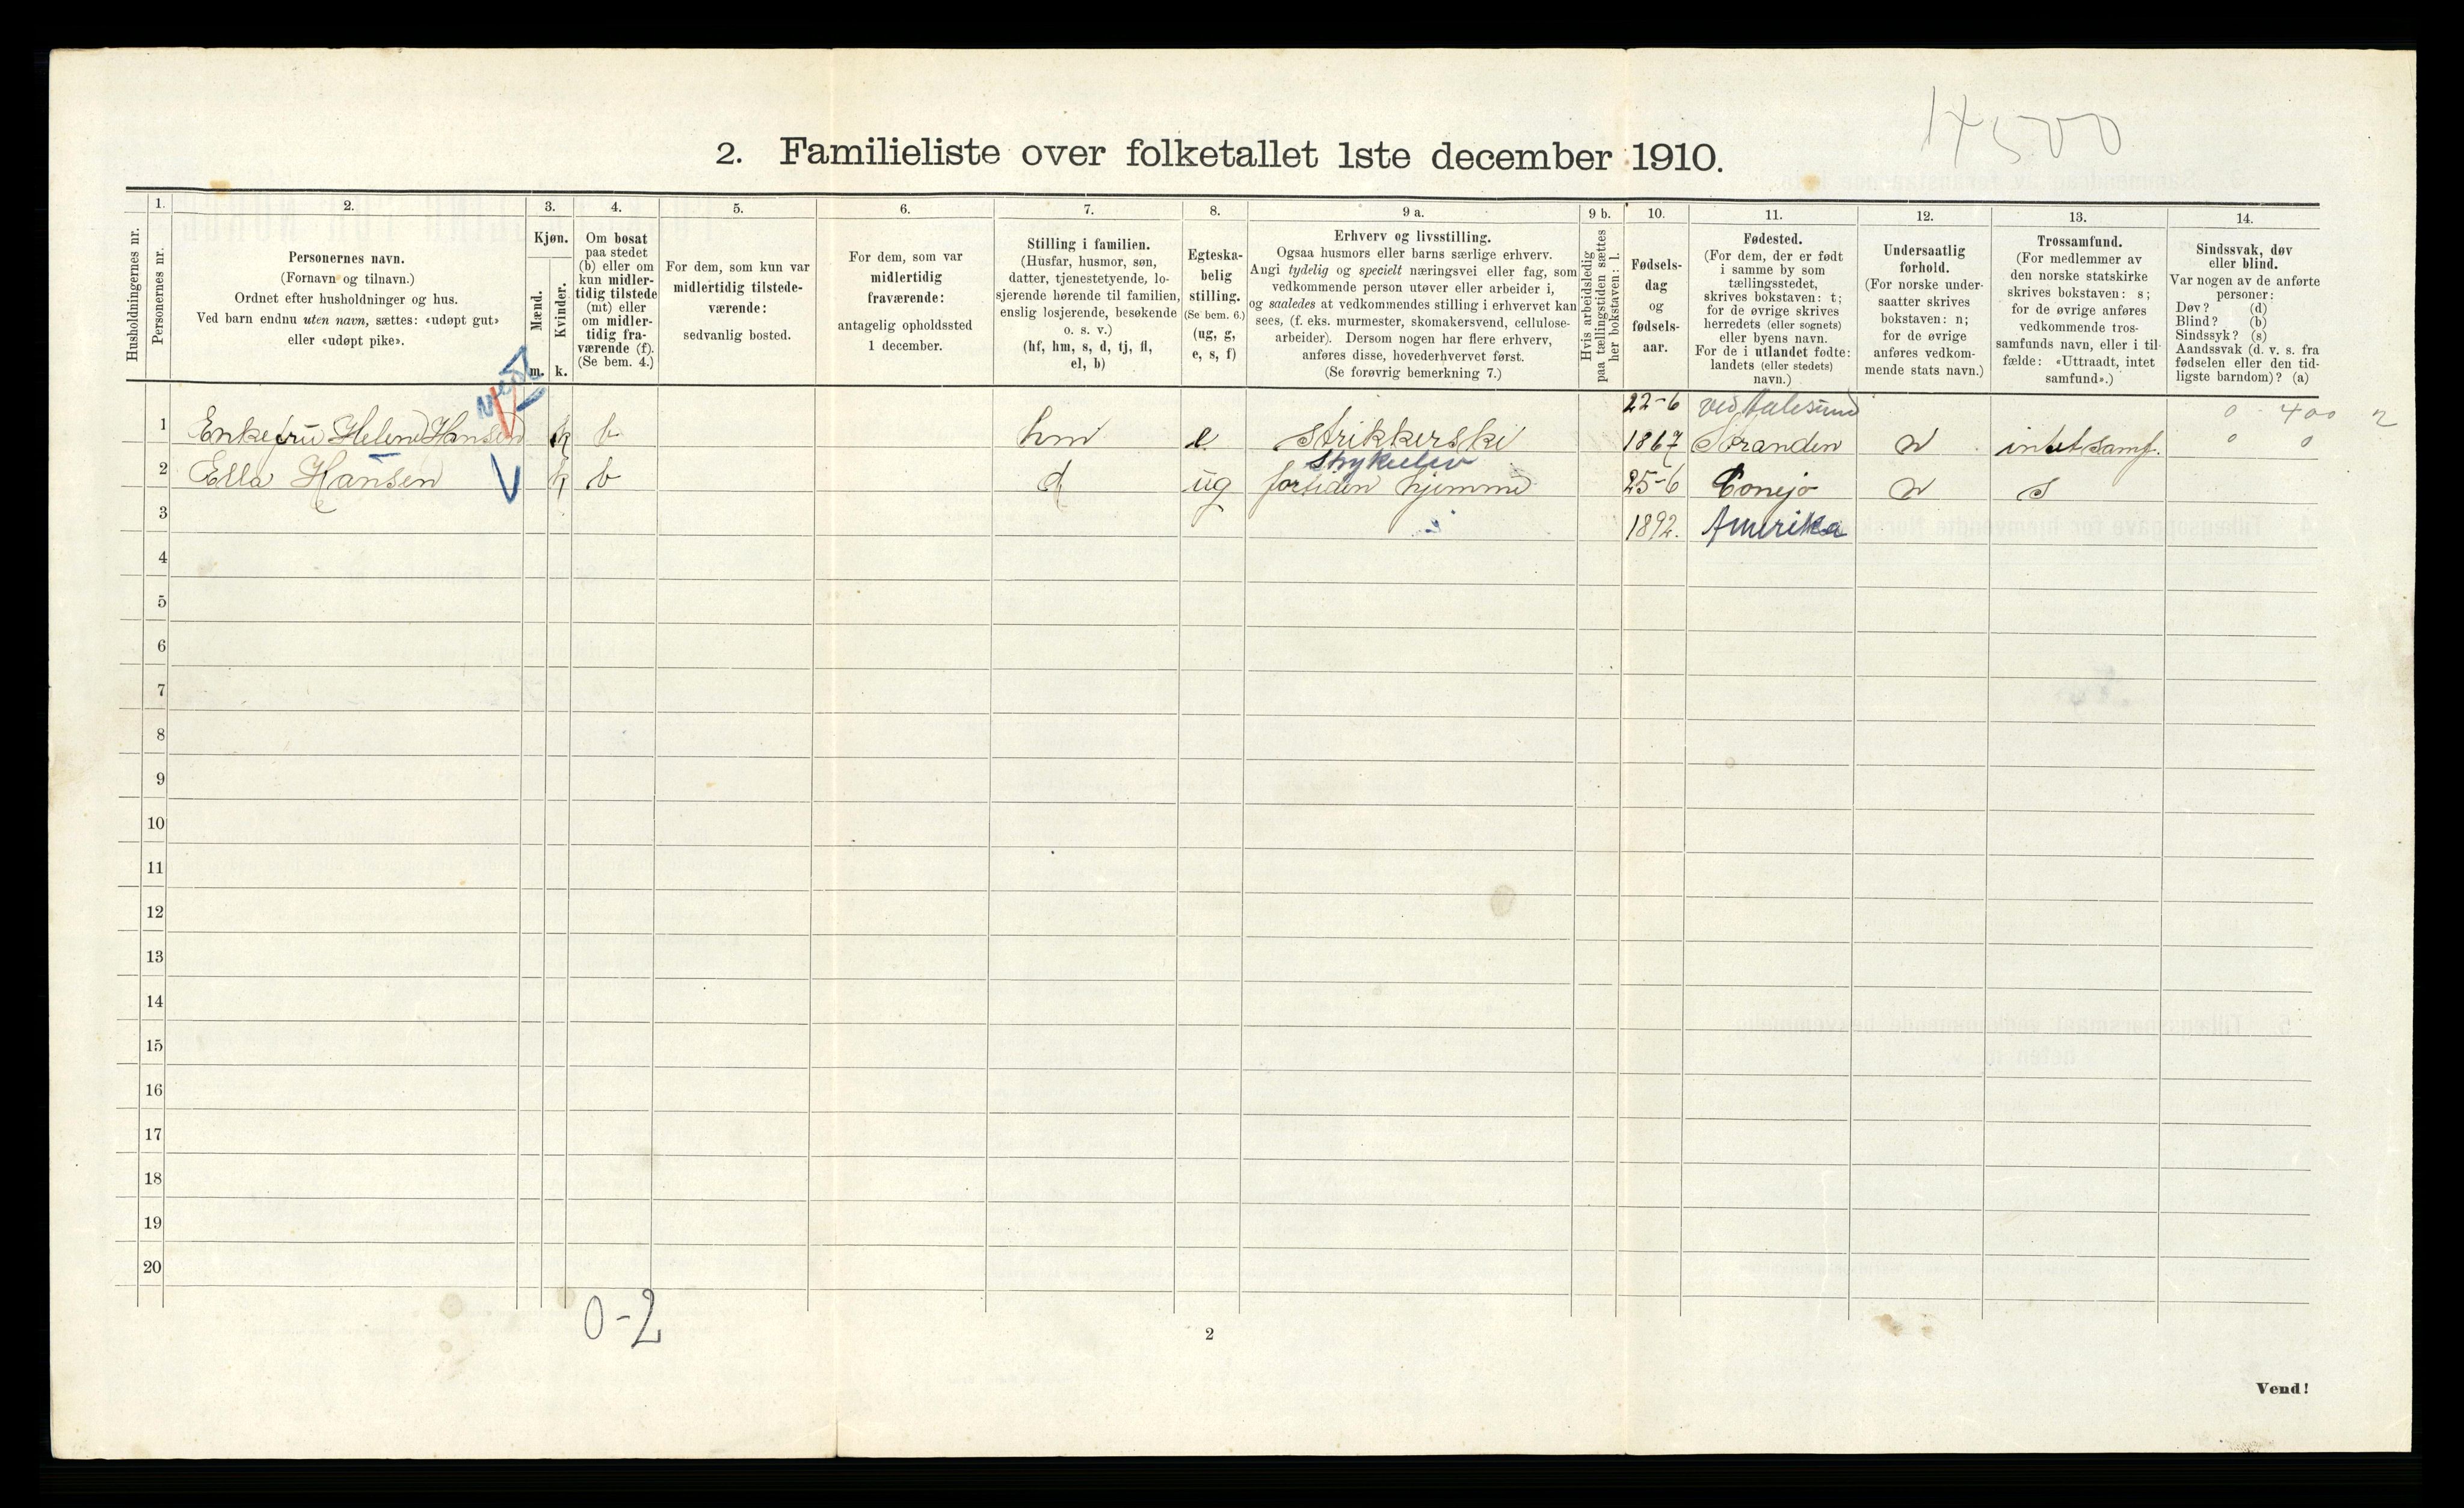 14500
2. Familieliste over folketallet 1ste december 1910.
Husholdningernes nr.
1.
Personernes nr.
2.
Personernes navn.
(Fornavn og tilnavn.)
Ordnet efter husholdninger og hus.
Ved barn endnu uten navn, sættes: «udøpt gut»
eller «udøpt pike».
3.
Kjøn.
Mænd.
m.
Kvinder.
k.
4.
Om bosat
paa stedet
(b) eller om
kun midler-
tidig tilstede
(mt) eller
om midler-
tidig fra-
værende (f).
(Se bem. 4.)
5.
For dem, som kun var
midlertidig tilstede-
værende:
sedvanlig bosted.
6.
For dem, som var
midlertidig
fraværende:
antagelig opholdssted
1 december.
7.
Stilling i familien.
(Husfar, husmor, søn,
datter, tjenestetyende, lo-
sjerende hørende til familien,
enslig losjerende, besøkende
o. s. v.)
(hf, hm, s, d, tj, fl,
el, b)
8.
Egteska-
belig
stilling.
(Se bem. 6.)
(ug, g,
e, s, f)
9 a.
Erhverv og livsstilling.
Ogsaa husmors eller barns særlige erhverv.
Angi tydelig og specielt næringsvei eller fag, som
vedkommende person utøver eller arbeider i,
og saaledes at vedkommendes stilling i erhvervet kan
sees, (f. eks. murmester, skomakersvend, cellulose-
arbeider). Dersom nogen har flere erhverv,
anføres disse, hovederhvervet først.
(Se forøvrig bemerkning 7.)
9 b.
Hvis arbeidsledig
paa tællingstiden sættes
her bokstaven: l.
10.
Fødsels-
dag
og
fødsels-
aar.
11.
Fødested.
(For dem, der er født
i samme by som
tællingsstedet,
skrives bokstaven: t;
for de øvrige skrives
herredets (eller sognets)
eller byens navn.
For de i utlandet fødte:
landets (eller stedets)
navn.)
12.
Undersaatlig
forhold.
(For norske under-
saatter skrives
bokstaven: n;
for de øvrige
anføres vedkom-
mende stats navn.)
13.
Trossamfund.
(For medlemmer av
den norske statskirke
skrives bokstaven: s;
for de øvrige anføres
vedkommende tros-
samfunds navn, eller i til-
fælde: «Uttraadt, intet
samfund».)
14.
Sindssvak, døv
eller blind.
Var nogen av de anførte
personer:
Døv? (d)
Blind? (b)
Sindssyk? (s)
Aandssvak (d. v. s. fra
fødselen eller den tid-
ligste barndom)? (a)
22-6 ved Aalesund 0 400 2
1 Enkefru Helene Hansen k b hm e strikkerske 1867 Stranden n intet samf. 0 0
2 Ella Hansen k b d ug for tiden hjemme 25-6 Conejo n s
3 1892. Amerika
4
5
6
7
8
9
10
11
12
13
14
15
16
17
18
19
20
0-2
2
Vend!